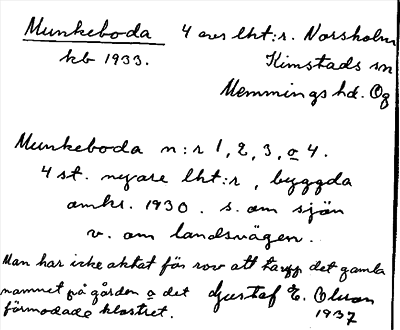 Munkeboda 4 avs lht:r. Norsholm
kb 1933. Kimstads sn
Memmings hd. Ög
Munkeboda n:r 1, 2, 3, o 4.
4 st. nyare lht:r, byggda
omkr. 1930. s. om sjön
v. om landsvägen.
Man har icke aktat för rov att det gamla
namnet på gården o det Gustaf E. Olson
förmodade klostret. 1937